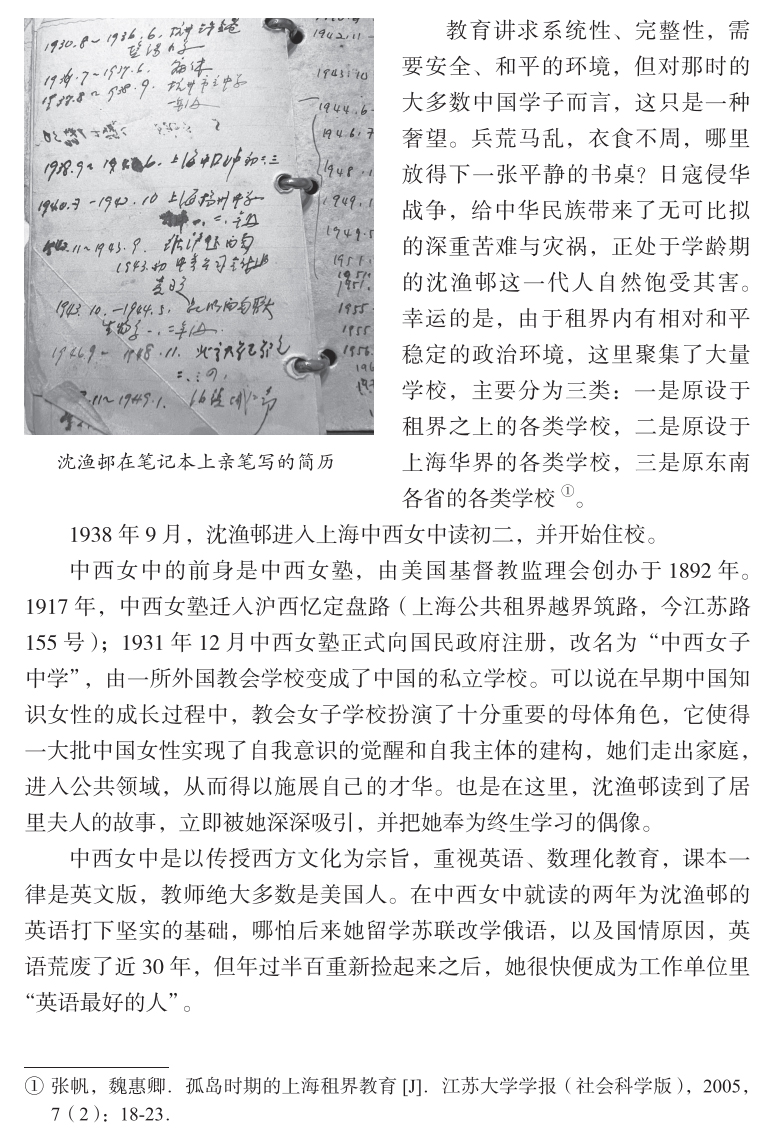 1930.8～1936.6.
1937.8～1938.9.
1938.9～
1940.7－1942.10 上海
～1943.9.
1943.10.－1944.5.
－1948.11.
11～1949.1.
1942.11－
1943.10
1944.6－
1946.7
1948.1
1949.1
1949.5
1951.
1951.
1955－
1955
1956.
沈渔邨在笔记本上亲笔写的简历
教育讲求系统性、完整性，需
要安全、和平的环境，但对那时的
大多数中国学子而言，这只是一种
奢望。兵荒马乱，衣食不周，哪里
放得下一张平静的书桌？日寇侵华
战争，给中华民族带来了无可比拟
的深重苦难与灾祸，正处于学龄期
的沈渔邨这一代人自然饱受其害。
幸运的是，由于租界内有相对和平
稳定的政治环境，这里聚集了大量
学校，主要分为三类：一是原设于
租界之上的各类学校，二是原设于
上海华界的各类学校，三是原东南
各省的各类学校①。
1938 年 9 月，沈渔邨进入上海中西女中读初二，并开始住校。
中西女中的前身是中西女塾，由美国基督教监理会创办于 1892 年。
1917 年，中西女塾迁入沪西忆定盘路（上海公共租界越界筑路，今江苏路
155 号）；1931 年 12 月中西女塾正式向国民政府注册，改名为“中西女子
中学”，由一所外国教会学校变成了中国的私立学校。可以说在早期中国知
识女性的成长过程中，教会女子学校扮演了十分重要的母体角色，它使得
一大批中国女性实现了自我意识的觉醒和自我主体的建构，她们走出家庭，
进入公共领域，从而得以施展自己的才华。也是在这里，沈渔邨读到了居
里夫人的故事，立即被她深深吸引，并把她奉为终生学习的偶像。
中西女中是以传授西方文化为宗旨，重视英语、数理化教育，课本一
律是英文版，教师绝大多数是美国人。在中西女中就读的两年为沈渔邨的
英语打下坚实的基础，哪怕后来她留学苏联改学俄语，以及国情原因，英
语荒废了近 30 年，但年过半百重新捡起来之后，她很快便成为工作单位里
“英语最好的人”。
① 张帆，魏惠卿．孤岛时期的上海租界教育 [J]．江苏大学学报（社会科学版），2005，
7（2）：18-23．